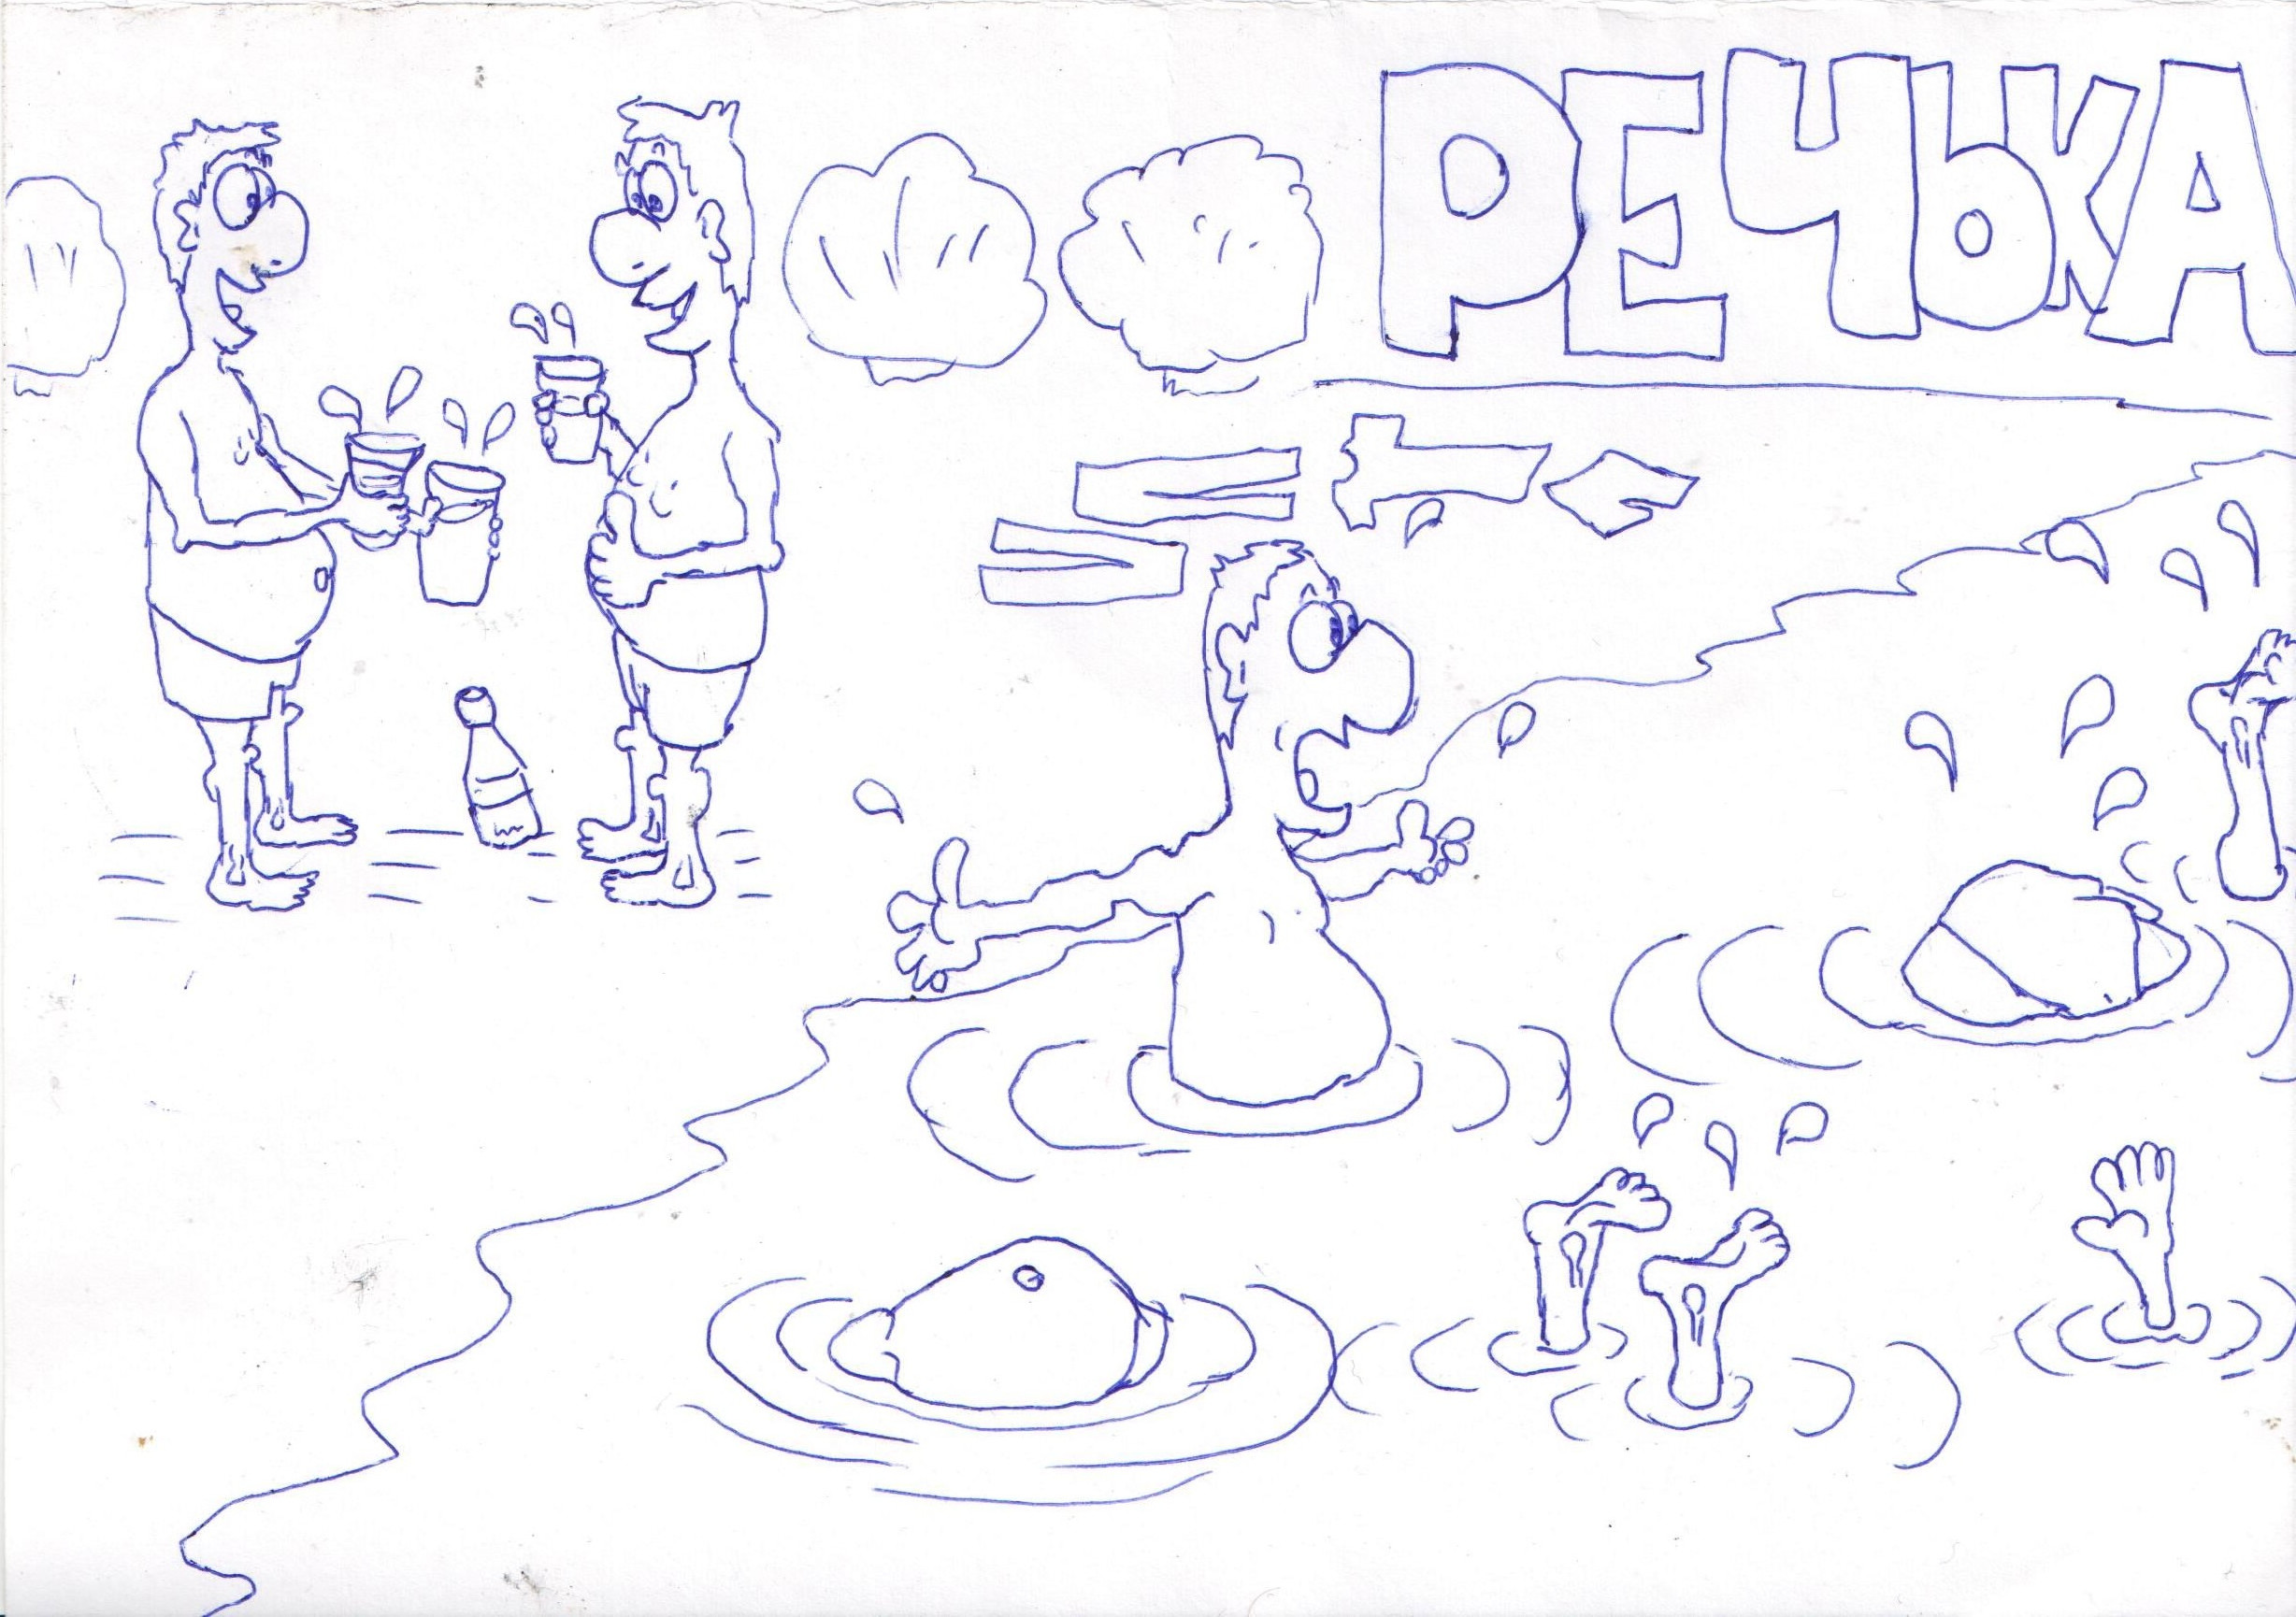 РЕЧЬКА